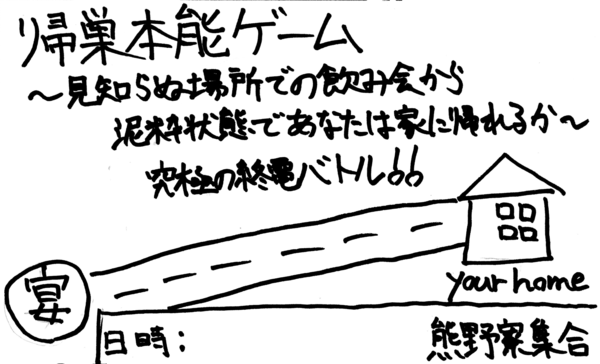 帰巣本能ゲーム
～見知らぬ場所での飲み会から
泥粋状態であなたは家に帰れるか～
究極の終電バトル!!
宴
your home
日時:
熊野寮集合